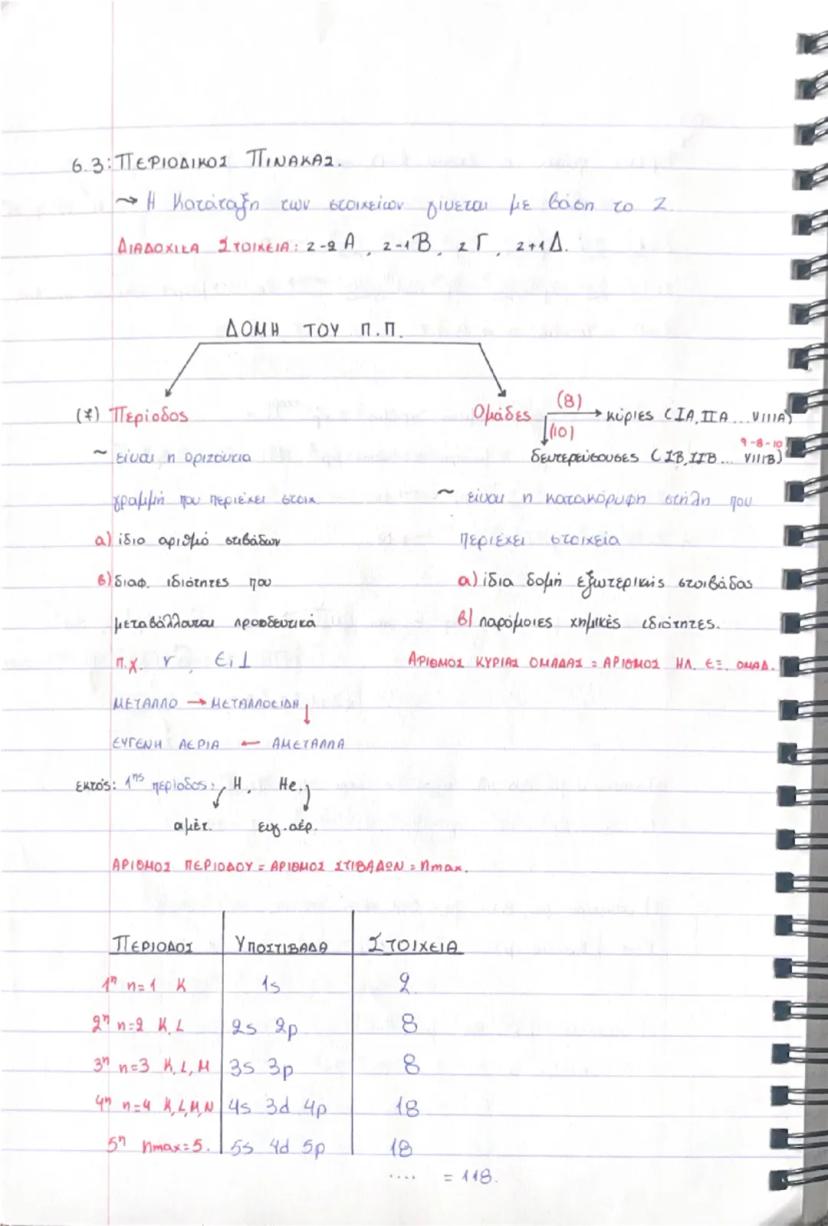 6.3: ΠΕΡΙΟΔΙΚΟΣ ΠΙΝΑΚΑΣ.
~> Η Κατάταξη των στοιχείων γίνεται με βάση το Z.
ΔΙΑΔΟΧΙΚΑ ΣΤΟΙΧΕΙΑ: z-2 Α, z-1 Β, z Γ, z+1 Δ.
ΔΟΜΗ ΤΟΥ Π.Π.
(7) Περίοδος
~ είναι η οριζόντια
γραμμή που περιέχει στοιχ.
α) ίδιο αριθμό στιβάδων
β) διαφ. ιδιότητες που
μεταβάλλονται προοδευτικά
π.χ. r, Ei↓
ΜΕΤΑΛΛΟ → ΜΕΤΑΛΛΟΕΙΔΗ ↓
ΕΥΓΕΝΗ ΑΕΡΙΑ ← ΑΜΕΤΑΛΛΑ
εκτός: 1ης περίοδος: H, He
αμέτ. ευγ. αέρ.
ΑΡΙΘΜΟΣ ΠΕΡΙΟΔΟΥ = ΑΡΙΘΜΟΣ ΣΤΙΒΑΔΩΝ = nmax.
Ομάδες (8) → κύριες (IA, IIA ... VIIIA)
(10) 9-8-10
δευτερεύουσες (IB, IIB ... VIIIB)
~ είναι η κατακόρυφη στήλη που
περιέχει στοιχεία
α) ίδια δομή εξωτερικής στοιβάδας
β) παρόμοιες χημικές ιδιότητες.
ΑΡΙΘΜΟΣ ΚΥΡΙΑΣ ΟΜΑΔΑΣ = ΑΡΙΘΜΟΣ ΗΛ. ΕΞ. ΟΜΑΔ.
ΠΕΡΙΟΔΟΣ ΥΠΟΣΤΙΒΑΔΑ ΣΤΟΙΧΕΙΑ
1η n=1 K 1s 2
2η n=2 K, L 2s 2p 8
3η n=3 K, L, M 3s 3p 8
4η n=4 K, L, M, N 4s 3d 4p 18
5η nmax=5. 5s 4d 5p 18
.... = 118.